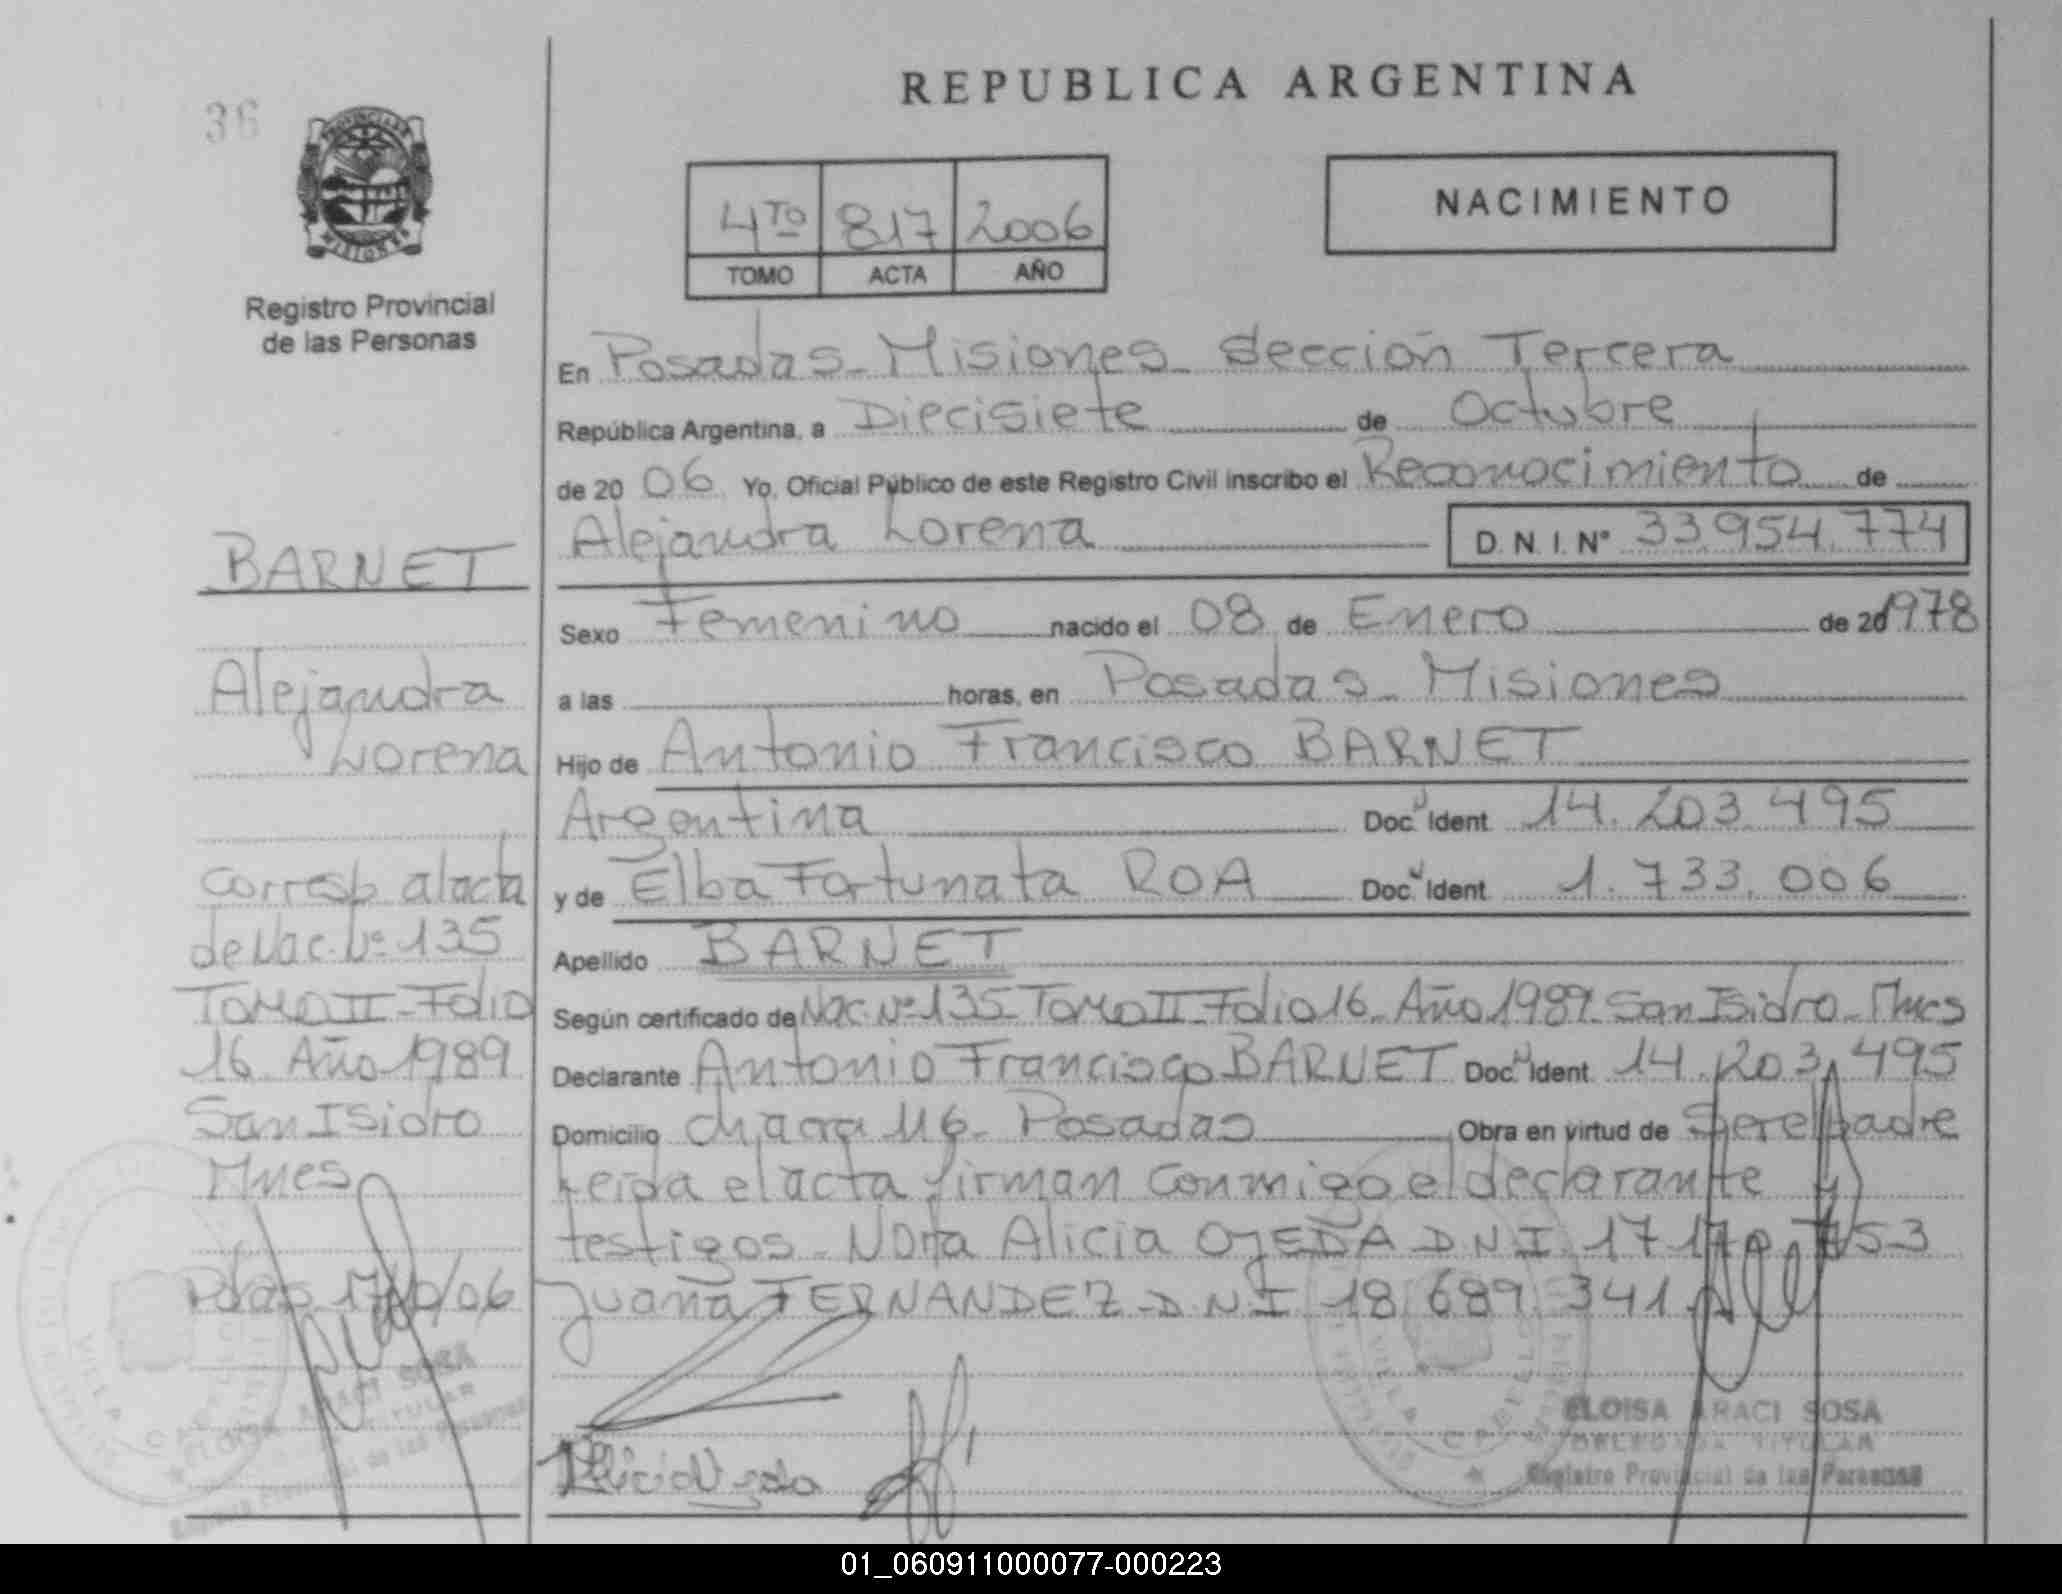 36
PROVINCIA DE
MISIONES
Registro Provincial
de las Personas
BARNET
Alejandra
Lorena
Corresp. al acta
de Nac. Nº 135
Tomo II - Folio
16. Año 1989
San Isidro
Mnes
Pdas 17/10/06
REPUBLICA ARGENTINA
4TO 817 2006
TOMO ACTA AÑO
NACIMIENTO
En Posadas - Misiones - Sección Tercera
República Argentina, a Diecisiete de Octubre
de 20 06 Yo, Oficial Público de este Registro Civil inscribo el Reconocimiento de
Alejandra Lorena D. N. I. Nº 33.954.774
Sexo Femenino nacido el 08 de Enero de 20 1978
a las horas, en Posadas - Misiones
Hijo de Antonio Francisco BARNET
Argentina Doc. Ident. 14.203.495
y de Elba Fortunata ROA Doc. Ident. 1.733.006
Apellido BARNET
Según certificado de Nac. Nº 135 - Tomo II - Folio 16 - Año 1989 - San Isidro - Mnes
Declarante Antonio Francisco BARNET Doc. Ident. 14.203.495
Domicilio Chacra 116 - Posadas Obra en virtud de Ser el padre
Leida el acta firman conmigo el declarante y
testigos - Nora Alicia OJEDA D.N.I. 17.170.753
Juana FERNANDEZ - D.N.I 18.689.341
ELOISA ARACI SOSA
DELEGADA TITULAR
Registro Provincial de las Personas
VILLA CABELLO
01_060911000077-000223